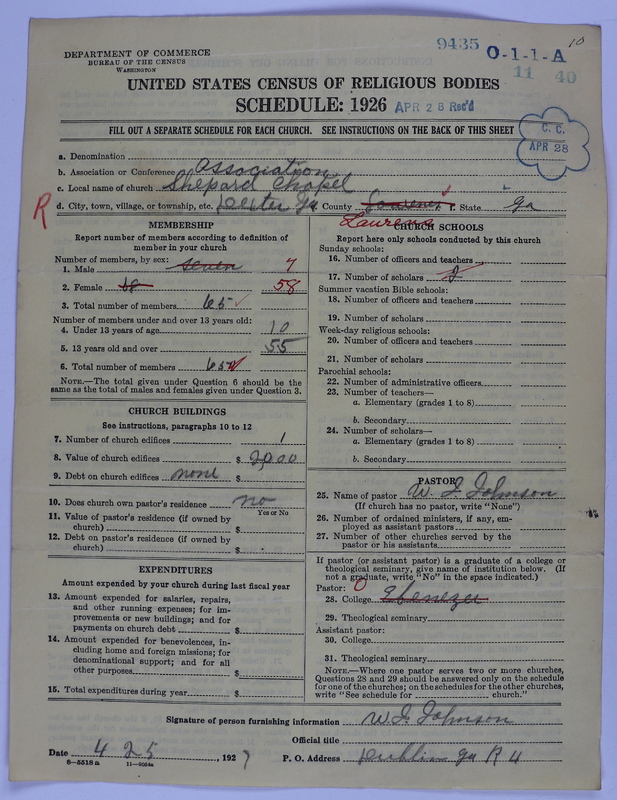 DEPARTMENT OF COMMERCE
BUREAU OF THE CENSUS
WASHINGTON
9435 O-1-1-A 10
11 40
UNITED STATES CENSUS OF RELIGIOUS BODIES
SCHEDULE: 1926 APR 28 Rec'd
FILL OUT A SEPARATE SCHEDULE FOR EACH CHURCH. SEE INSTRUCTIONS ON THE BACK OF THIS SHEET
C. C.
APR 28
a. Denomination
b. Association or Conference association
c. Local name of church Shepard Chapel
R d. City, town, village, or township, etc. Dexter Ga County Laurens f. State Ga
Laurens
MEMBERSHIP
Report number of members according to definition of member in your church
Number of members, by sex:
1. Male seven 7
2. Female 58 58
3. Total number of members 65
Number of members under and over 13 years old:
4. Under 13 years of age 10
5. 13 years old and over 55
6. Total number of members 65
NOTE.—The total given under Question 6 should be
same as the total of males and females given under Question 3.
CHURCH BUILDINGS
See instructions, paragraphs 10 to 12
7. Number of church edifices 1
8. Value of church edifices $ 2,000
9. Debt on church edifices none $
10. Does church own pastor's residence no
Yes or No
11. Value of pastor's residence (if owned by
church) $
12. Debt on pastor's residence (if owned by
church) $
EXPENDITURES
Amount expended by your church during last fiscal year
13. Amount expended for salaries, repairs,
and other running expenses; for im-
provements or new buildings; and for
payments on church debt $
14. Amount expended for benevolences, in-
cluding home and foreign missions; for
denominational support; and for all
other purposes $
15. Total expenditures during year $
CHURCH SCHOOLS
Report here only schools conducted by this church
Sunday schools:
16. Number of officers and teachers
17. Number of scholars 2
Summer vacation Bible schools:
18. Number of officers and teachers
19. Number of scholars
Week-day religious schools:
20. Number of officers and teachers
21. Number of scholars
Parochial schools:
22. Number of administrative officers
23. Number of teachers—
a. Elementary (grades 1 to 8)
b. Secondary
24. Number of scholars—
a. Elementary (grades 1 to 8)
b. Secondary $
PASTOR
25. Name of pastor W. I. Johnson
(If church has no pastor, write "None")
26. Number of ordained ministers, if any, em-
ployed as assistant pastors
27. Number of other churches served by the
pastor or his assistants
If pastor (or assistant pastor) is a graduate of a college or
theological seminary, give name of institution below. (If
not a graduate, write "No" in the space indicated.)
Pastor: O
28. College Ebenezer
29. Theological seminary
Assistant pastor:
30. College
31. Theological seminary
NOTE.—Where one pastor serves two or more churches,
Questions 28 and 29 should be answered only on the schedule
for one of the churches; on the schedules for the other churches,
write "See schedule for church."
Signature of person furnishing information W. I. Johnson
Official title
Date 4 25, 1927 P. O. Address Dublin Ga R 4
6—5518a 11—9054a